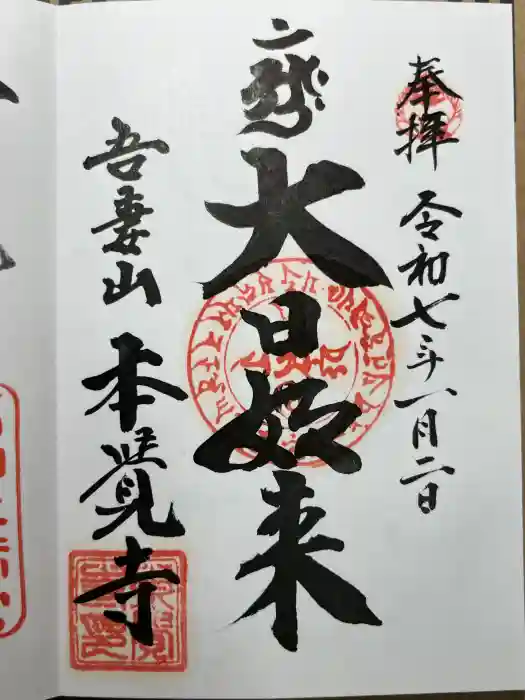 奉拝
令和七年一月二日
大日如来
吾妻山
本覺寺